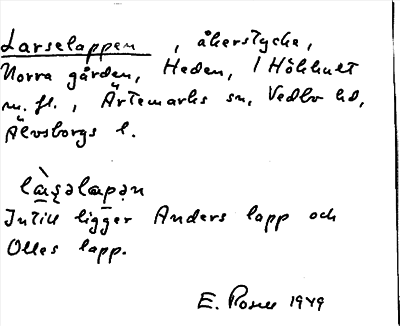 Larselappen, åkerstycke,
Norra gården, Heden, / Hökhult
m. fl., Ärtemarks sn, Vedbo hd,
Älvsborgs l.
Intill ligger Anders lapp och
Olles lapp.
E. Rosell 1949